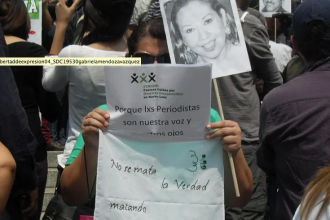 bertaddeexpresion04_SDC19530gabrielamendozavazquez
Porque lxs Periodistas
son nuestra voz y
ojos
No se mata
la Verdad
matando